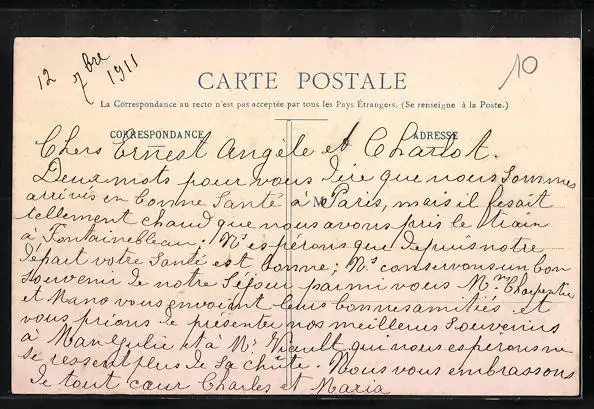 12 7bre 1911
10
CARTE POSTALE
La Correspondance au recto n'est pas acceptée par tous les Pays Étrangers. (Se renseigne à la Poste.)
CORRESPONDANCE
ADRESSE
Chers Ernest Angele et Charlot.
Deux mots pour vous dire que nous sommes
arrivés en bonne Santé à Paris, mais il fesait
M
tellement chaud que nous avons pris le train
à Fontainebleau; Ns espérons que depuis notre
départ votre Santé est bonne; Ns conservons un bon
Souvenir de notre Séjour parmi vous Mme Charpentier
et Nano vous envoient leurs bonnes amitiés et
vous prions de présenter nos meilleurs Souvenirs
à et à Mr qui nous espérons ne
se ressent plus de Sa chûte. Nous vous embrassons
de tout cœur Charles et Maria